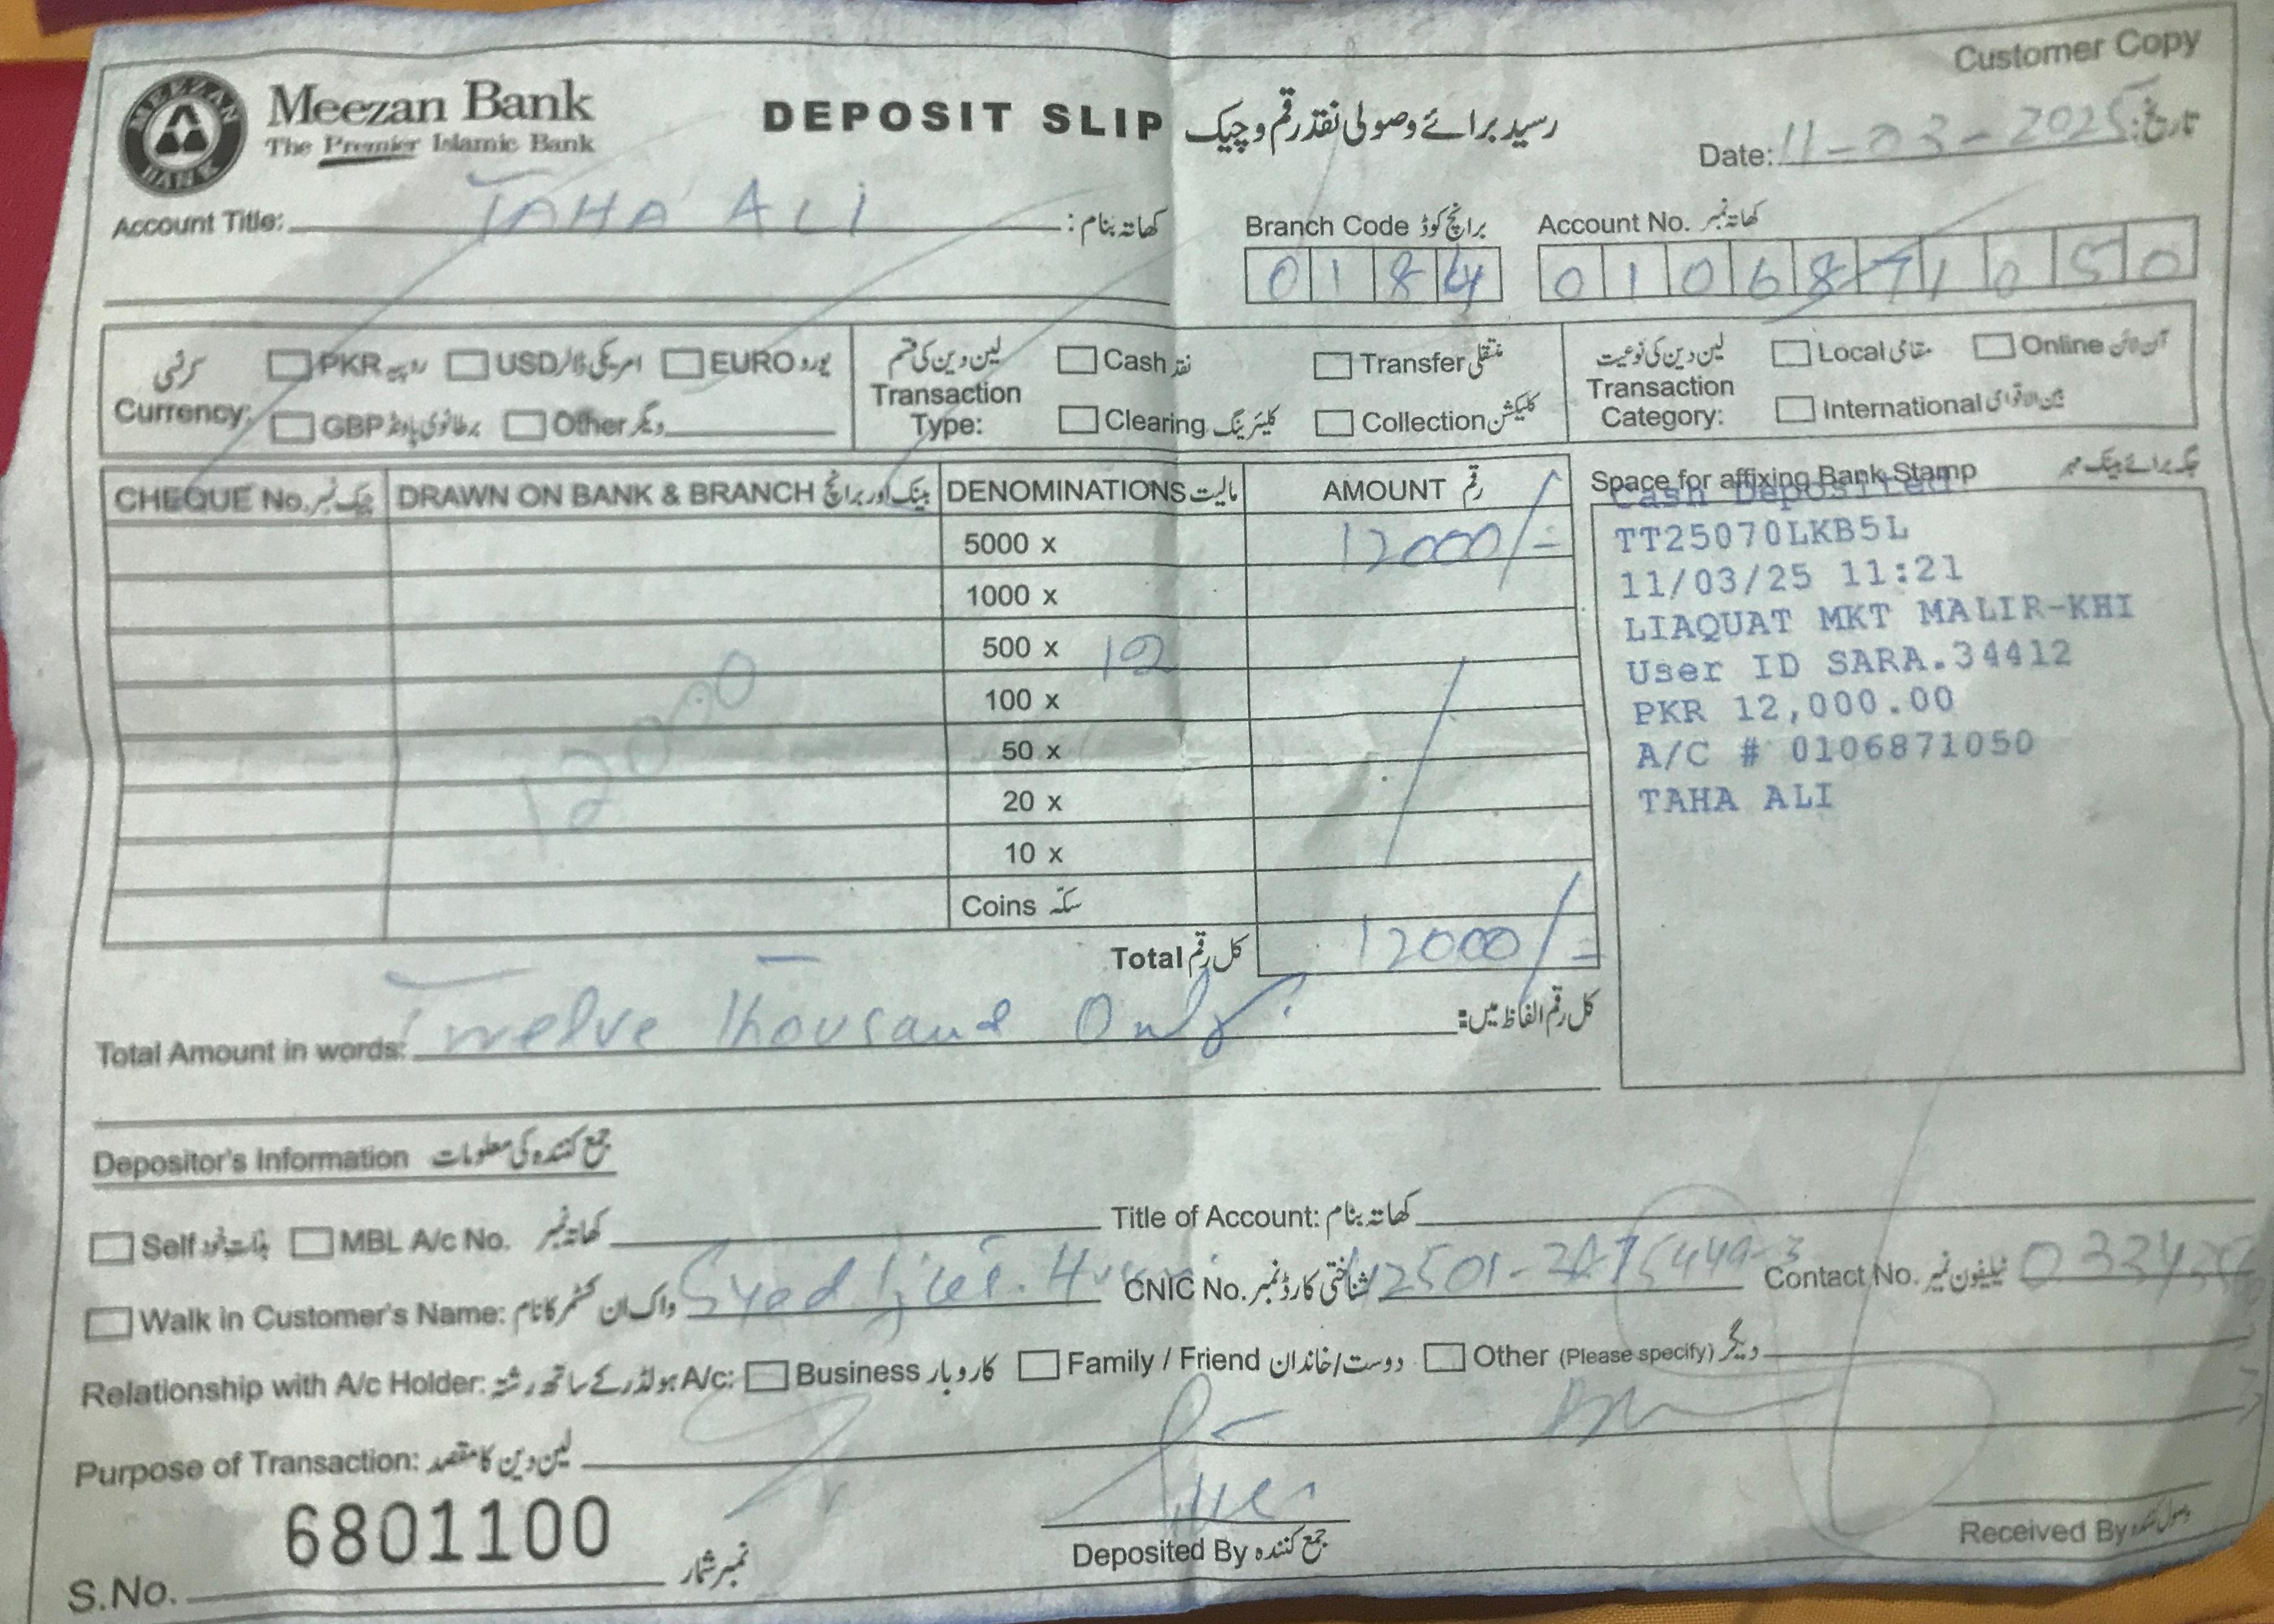 Customer Copy
MEEZAN BANK
Meezan Bank
The Premier Islamic Bank
DEPOSIT SLIP رسید برائے وصولی نقد رقم و چیک
Date: 11-03-2025 تاریخ:
Account Title: TAHA ALI کھاتہ بنام:
Branch Code برانچ کوڈ Account No. کھاتہ نمبر
0184 0106871050
Currency: کرنسی
PKR روپیہ USD امریکی ڈالر EURO یورو
GBP برطانوی پاؤنڈ Other دیگر
Transaction Type: لین دین کی قسم
Cash نقد Transfer منتقلی
Clearing کلیئرنگ Collection کلیکشن
Transaction Category: لین دین کی نوعیت
Local مقامی Online آن لائن
International بین الاقوامی
CHEQUE No. چیک نمبر DRAWN ON BANK & BRANCH بینک اور برانچ DENOMINATIONS مالیت AMOUNT رقم
5000 x 12000/=
1000 x
500 x
100 x
50 x
20 x
10 x
Coins سکہ
12000
Total کل رقم 12000/=
Space for affixing Bank Stamp جگہ برائے بینک مہر
Cash Deposited
TT25070LKB5L
11/03/25 11:21
LIAQUAT MKT MALIR-KHI
User ID SARA.34412
PKR 12,000.00
A/C # 0106871050
TAHA ALI
Total Amount in words: Twelve Thousand Only. کل رقم الفاظ میں:
Depositor's Information جمع کنندہ کی معلومات
Self بذات خود MBL A/c No. کھاتہ نمبر Title of Account: کھاتہ بنام
Walk in Customer's Name: واک ان کسٹمر کا نام Syed CNIC No. شناختی کارڈ نمبر Contact No. ٹیلیفون نمبر
Relationship with A/c Holder: A/c ہولڈر کے ساتھ رشتہ: Business کاروبار Family / Friend دوست/خاندان Other (Please specify) دیگر
Purpose of Transaction: لین دین کا مقصد
S.No. 6801100 نمبر شمار
Deposited By جمع کنندہ
Received By وصول کنندہ